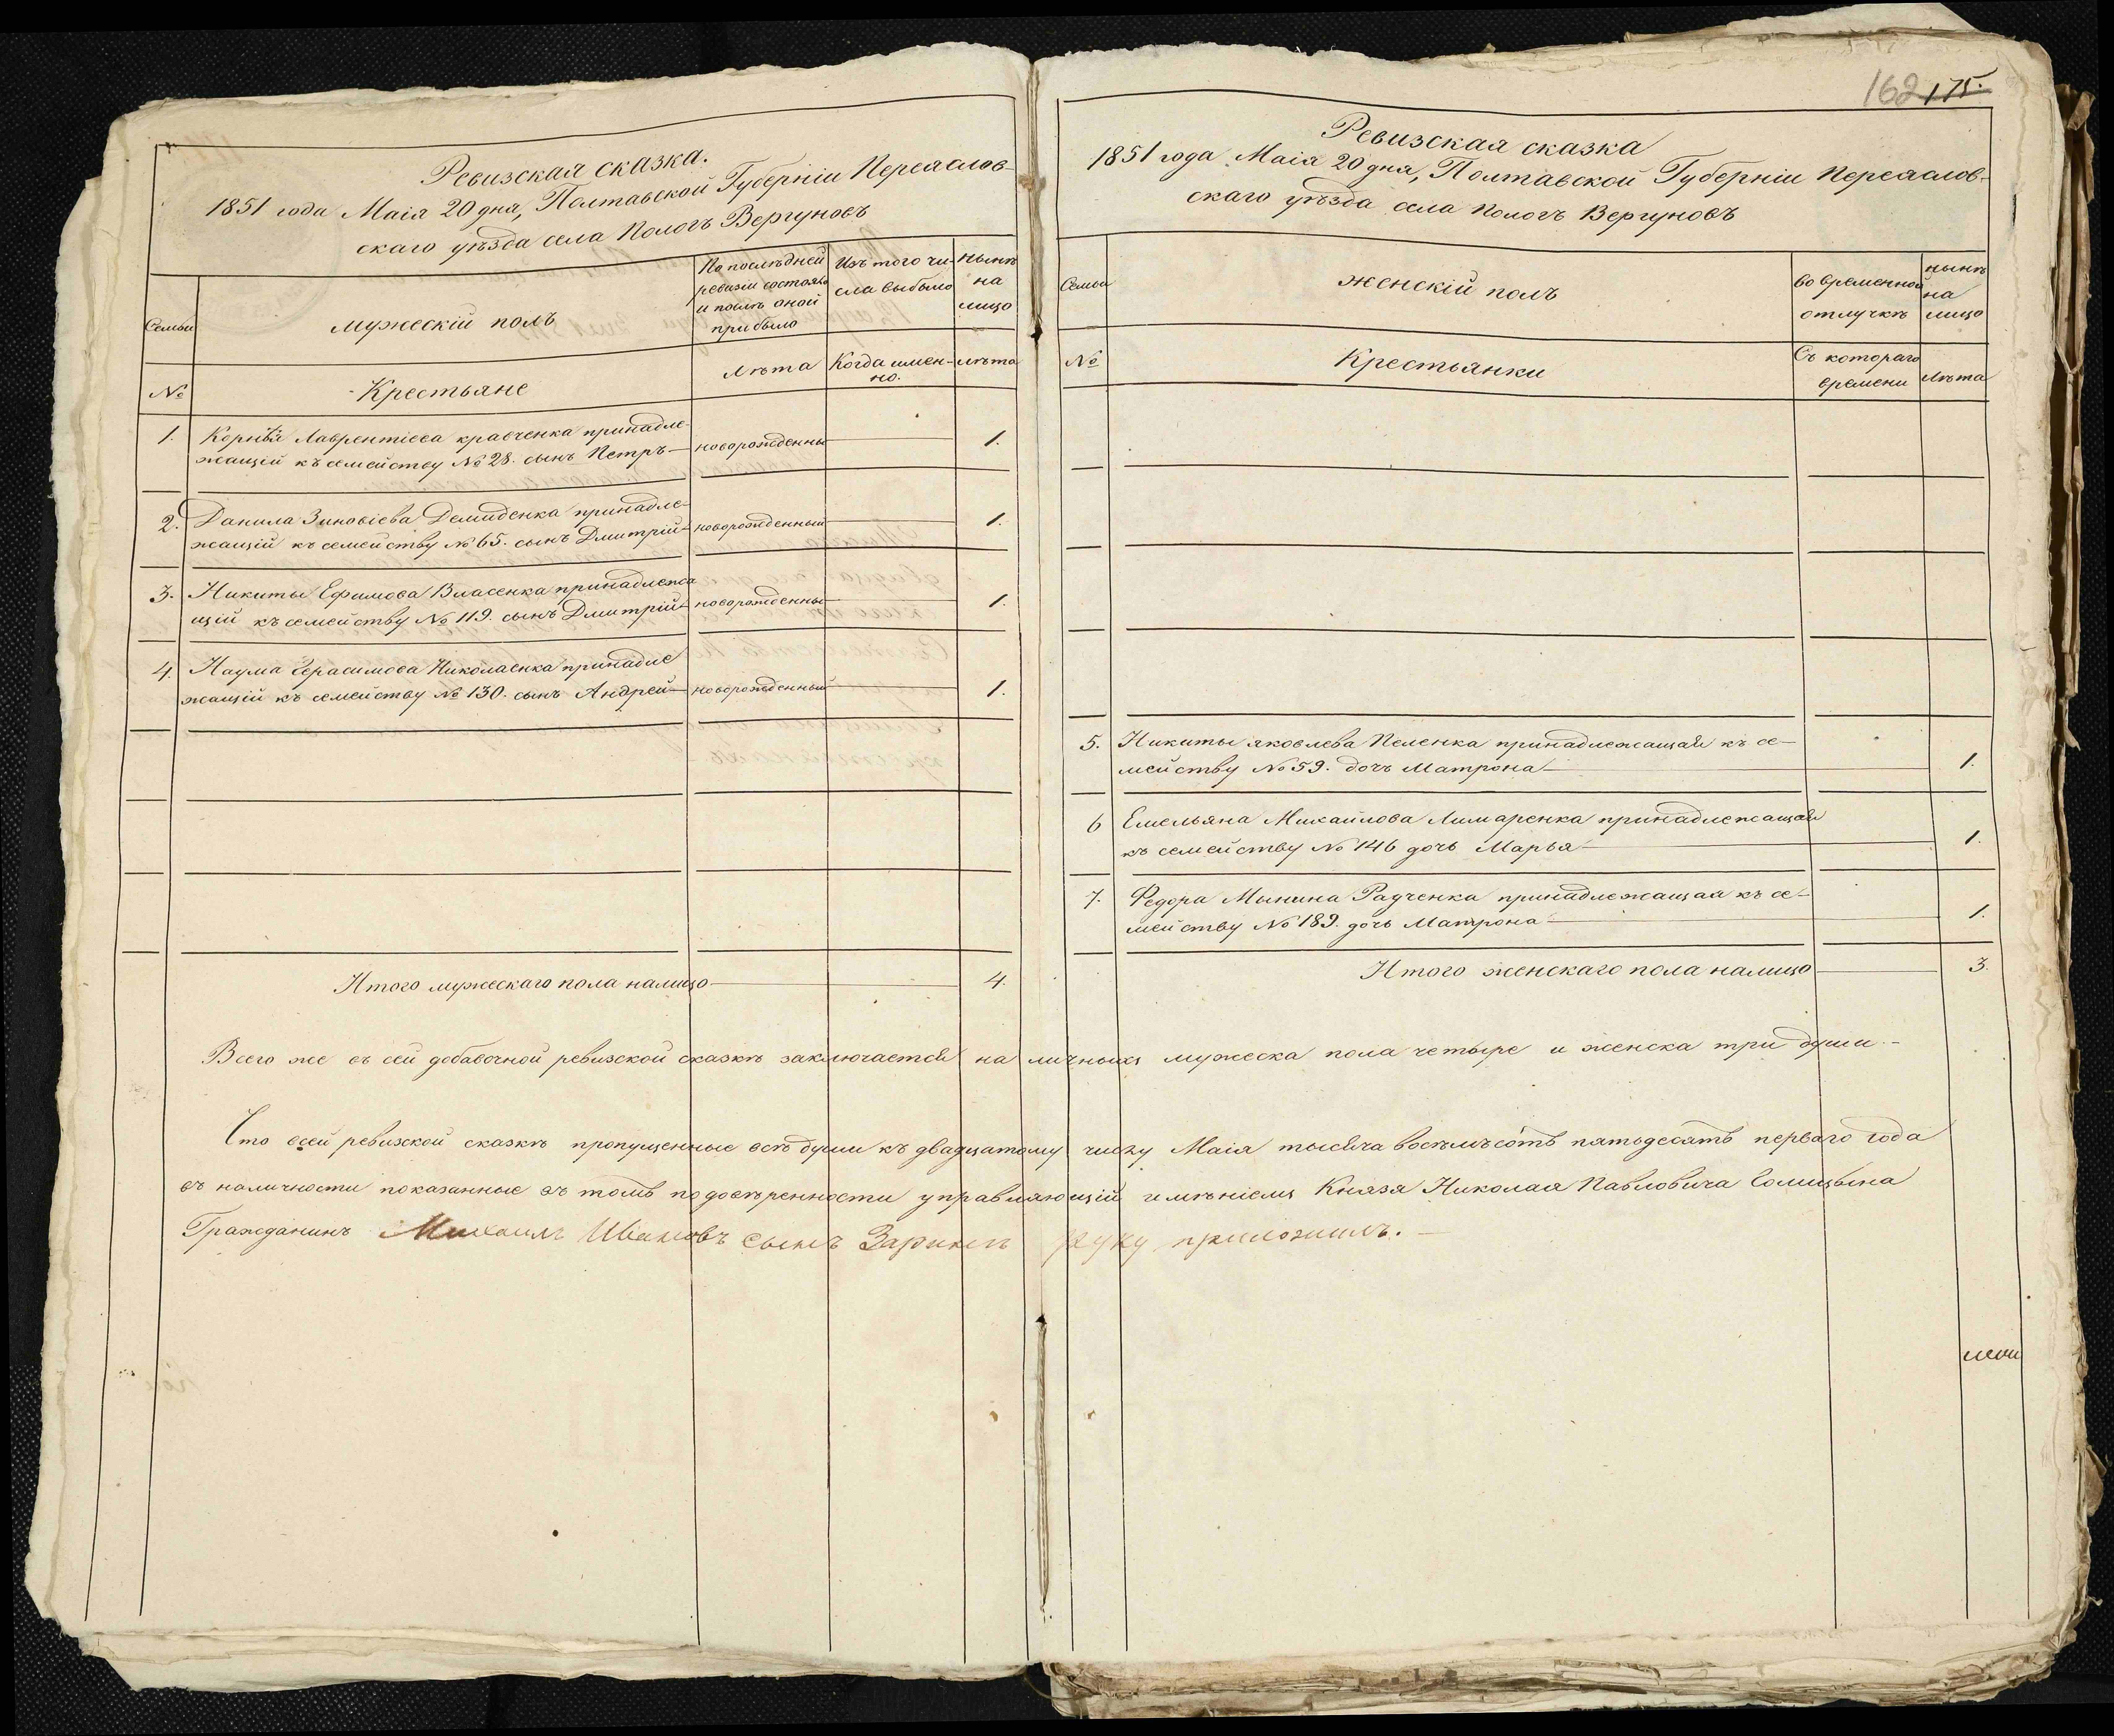 Ревизская сказка.
1851 года Маія 20 дня, Полтавской Губерніи Переяслов-
скаго уѣзда села Пологъ Вергуновъ
Семьи
мужескій полъ
По послѣдней
ревизіи состояло
и послѣ оной
прибыло
Изъ того чи-
сла выбыло
нынѣ
на
лицо
№
Крестьяне
Лѣта
Когда имен-
но.
лѣта
1. Корнѣя Лаврентіева кравченка принадле-
жащій къ семейству № 28. сынъ Петръ — новорожденны 1.
2. Данила Зиновіева Демиденка принадле-
жащій къ семейству № 65. сынъ Дмитрій новорожденный 1.
3. Никиты Ефимова Власенка принадлежа
щій къ семейству № 119. сынъ Дмитрій новорожденны 1.
4. Наума Герасимова Николаенка принадле
жащій къ семейству № 130. сынъ Андрей — новорожденный 1.
Итого мужескаго пола налицо 4.
162 175.
Ревизская сказка
1851 года Маія 20 дня, Полтавской Губерніи Переяслов-
скаго уѣзда села Пологъ Вергуновъ
Семьи
женскій полъ
во временной
отлучкѣ
нынѣ
на
лицо
№
Крестьянки
Съ котораго
времени
Лѣта
5. Никиты яковлева Пеленка принадлежащая къ се-
мейству № 59. дочь Матрона 1.
6 Емельяна Михайлова Лимаренка принадлежащая
къ семейству № 146 дочь Марья 1.
7. Федора Минина Радченка принадлежащая къ се-
мейству № 189. дочь Матрона 1.
Итого женскаго пола налицо 3.
Всего же въ сей добавочной ревизской сказкѣ заключается на личныхъ мужеска пола четыре и женска три души. —
Что всей ревизской сказкѣ пропущенные всѣ души къ двадцатому числу Маія тысяча восѣмъсотъ пятодесятъ перваго года
въ наличности показанные въ томъ по довѣренности управляющій имѣніемъ Князя Николая Павловича Голицына
Гражданинъ Михаилъ Ивановъ сынъ руку приложилъ. —